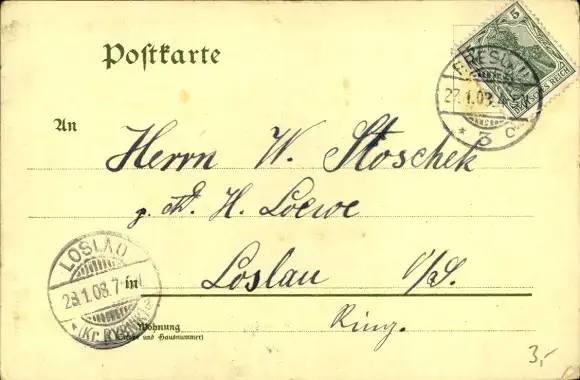 Postkarte
5
DEUTSCHES REICH
BRESLAU
27.1.03.
* 3 c
An
Herrn W. Stoschek
H. Loewe
LOSLAU
28.1.03.7-
* (Kr. RYBNIK)
in Loslau O/S.
Ring.
Wohnung
(Straße und Hausnummer)
3,-